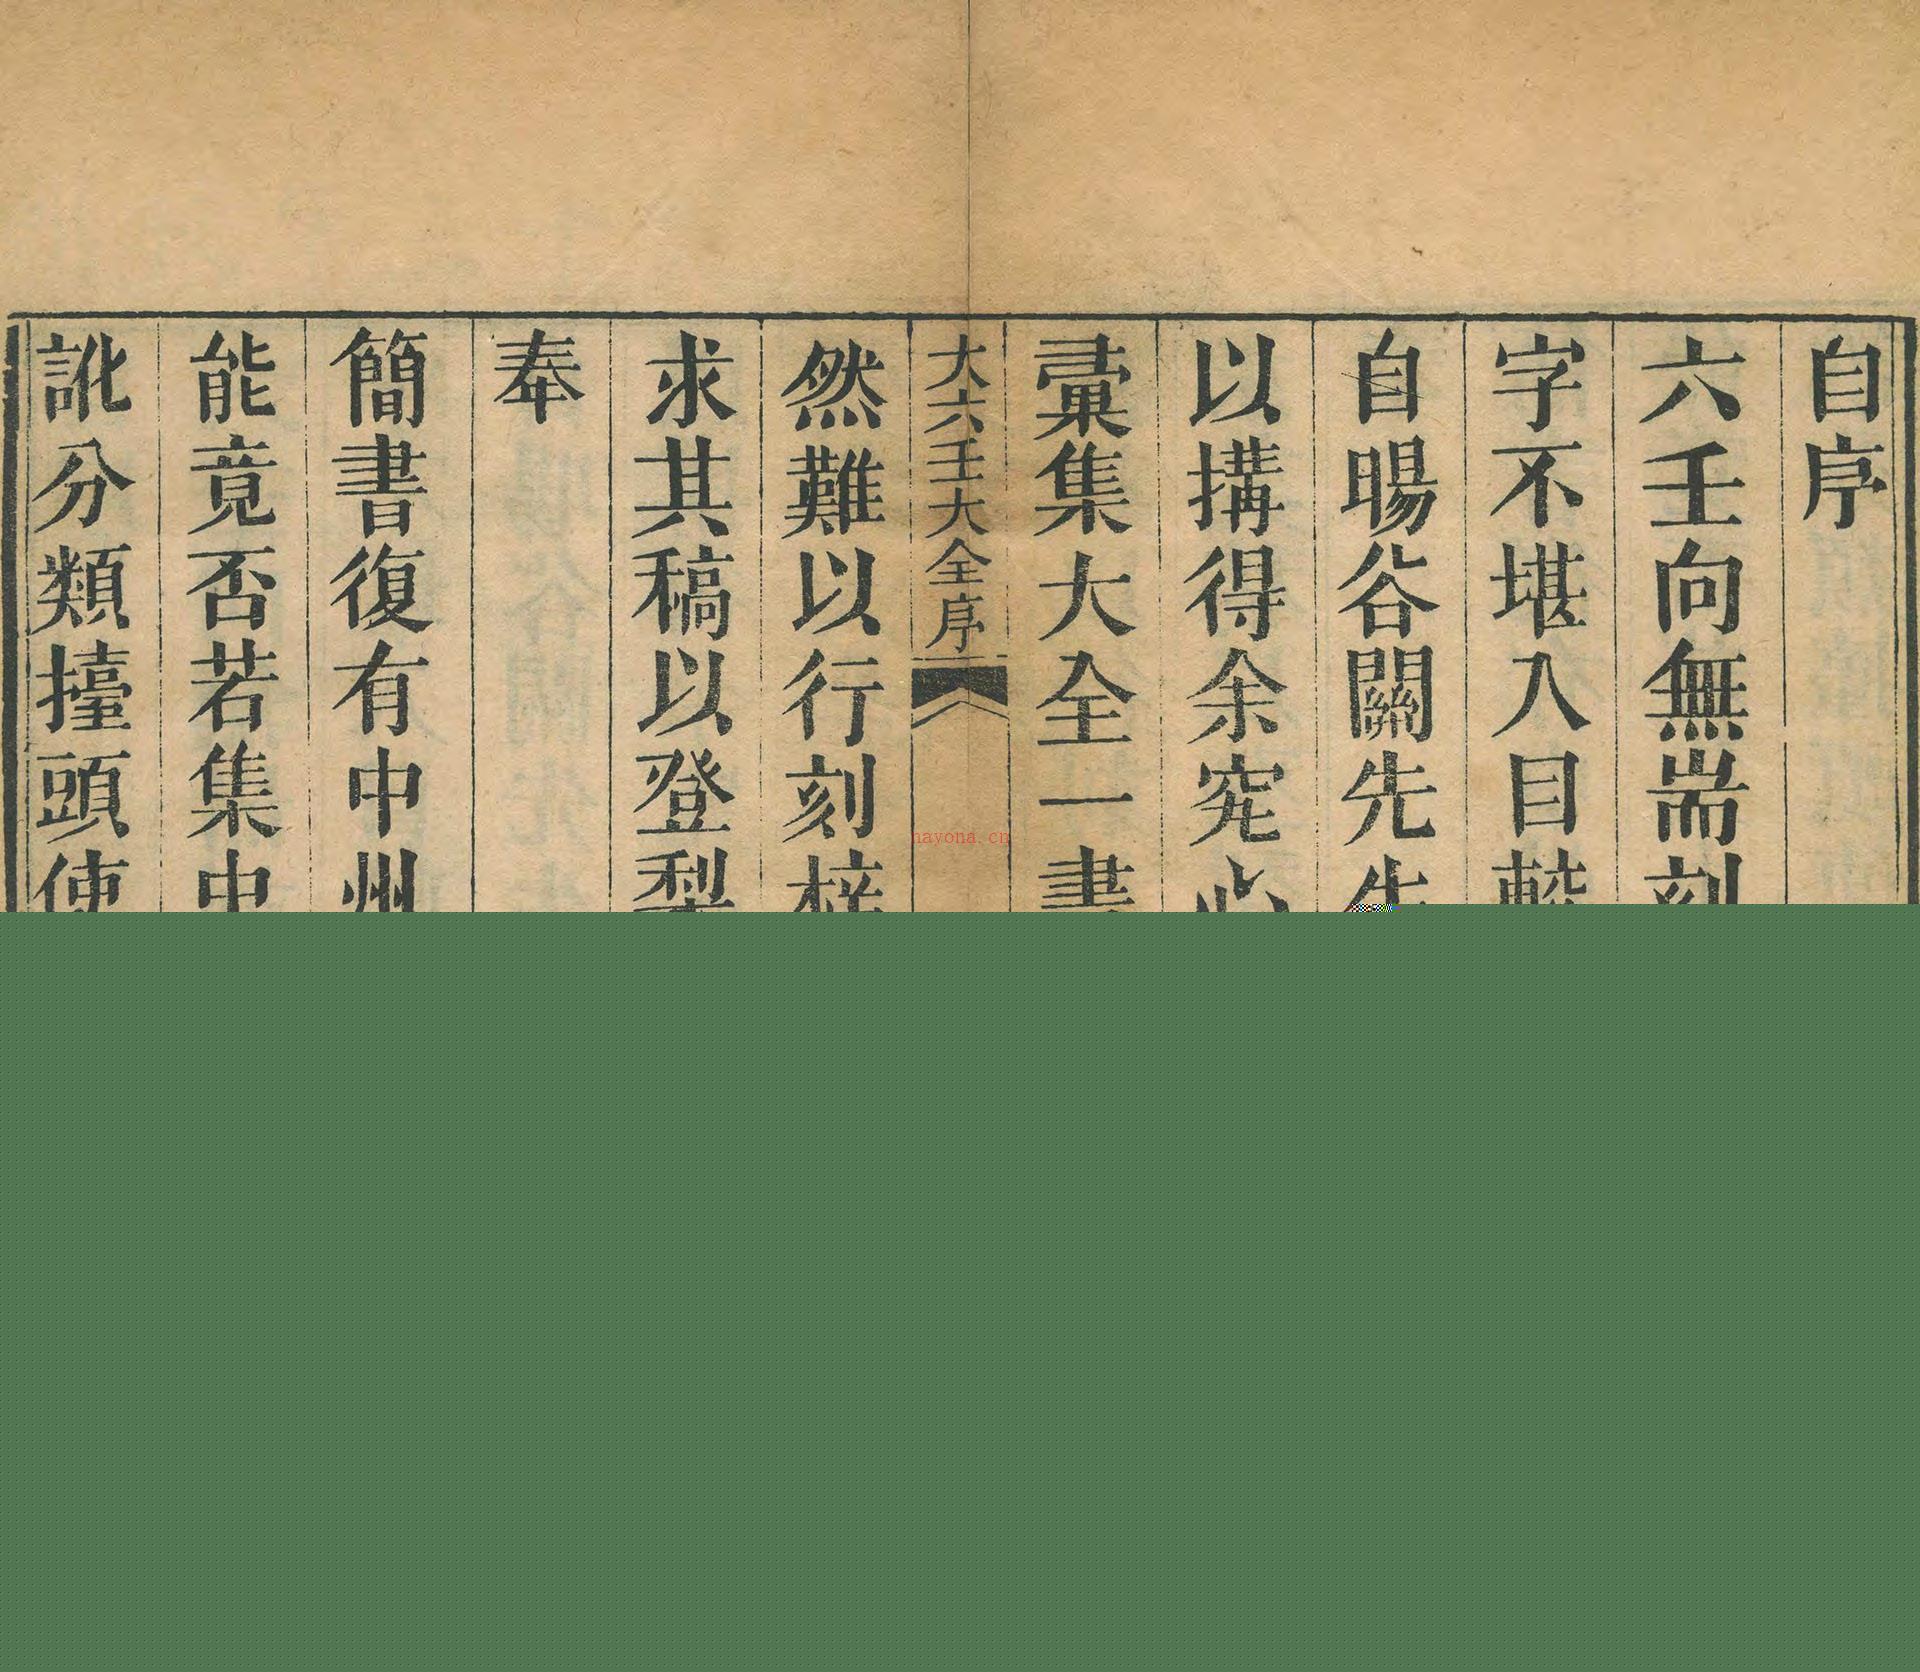 自序
六壬向無耑刻
字不堪入目
自暘谷關先生
以搆得余究心
彙集大全一書
大六壬大全序
然難以行刻梓
求其稿以登梨
奉
簡書復有中州
能竟否若集中
訛分類擡頭使
nayona.cn